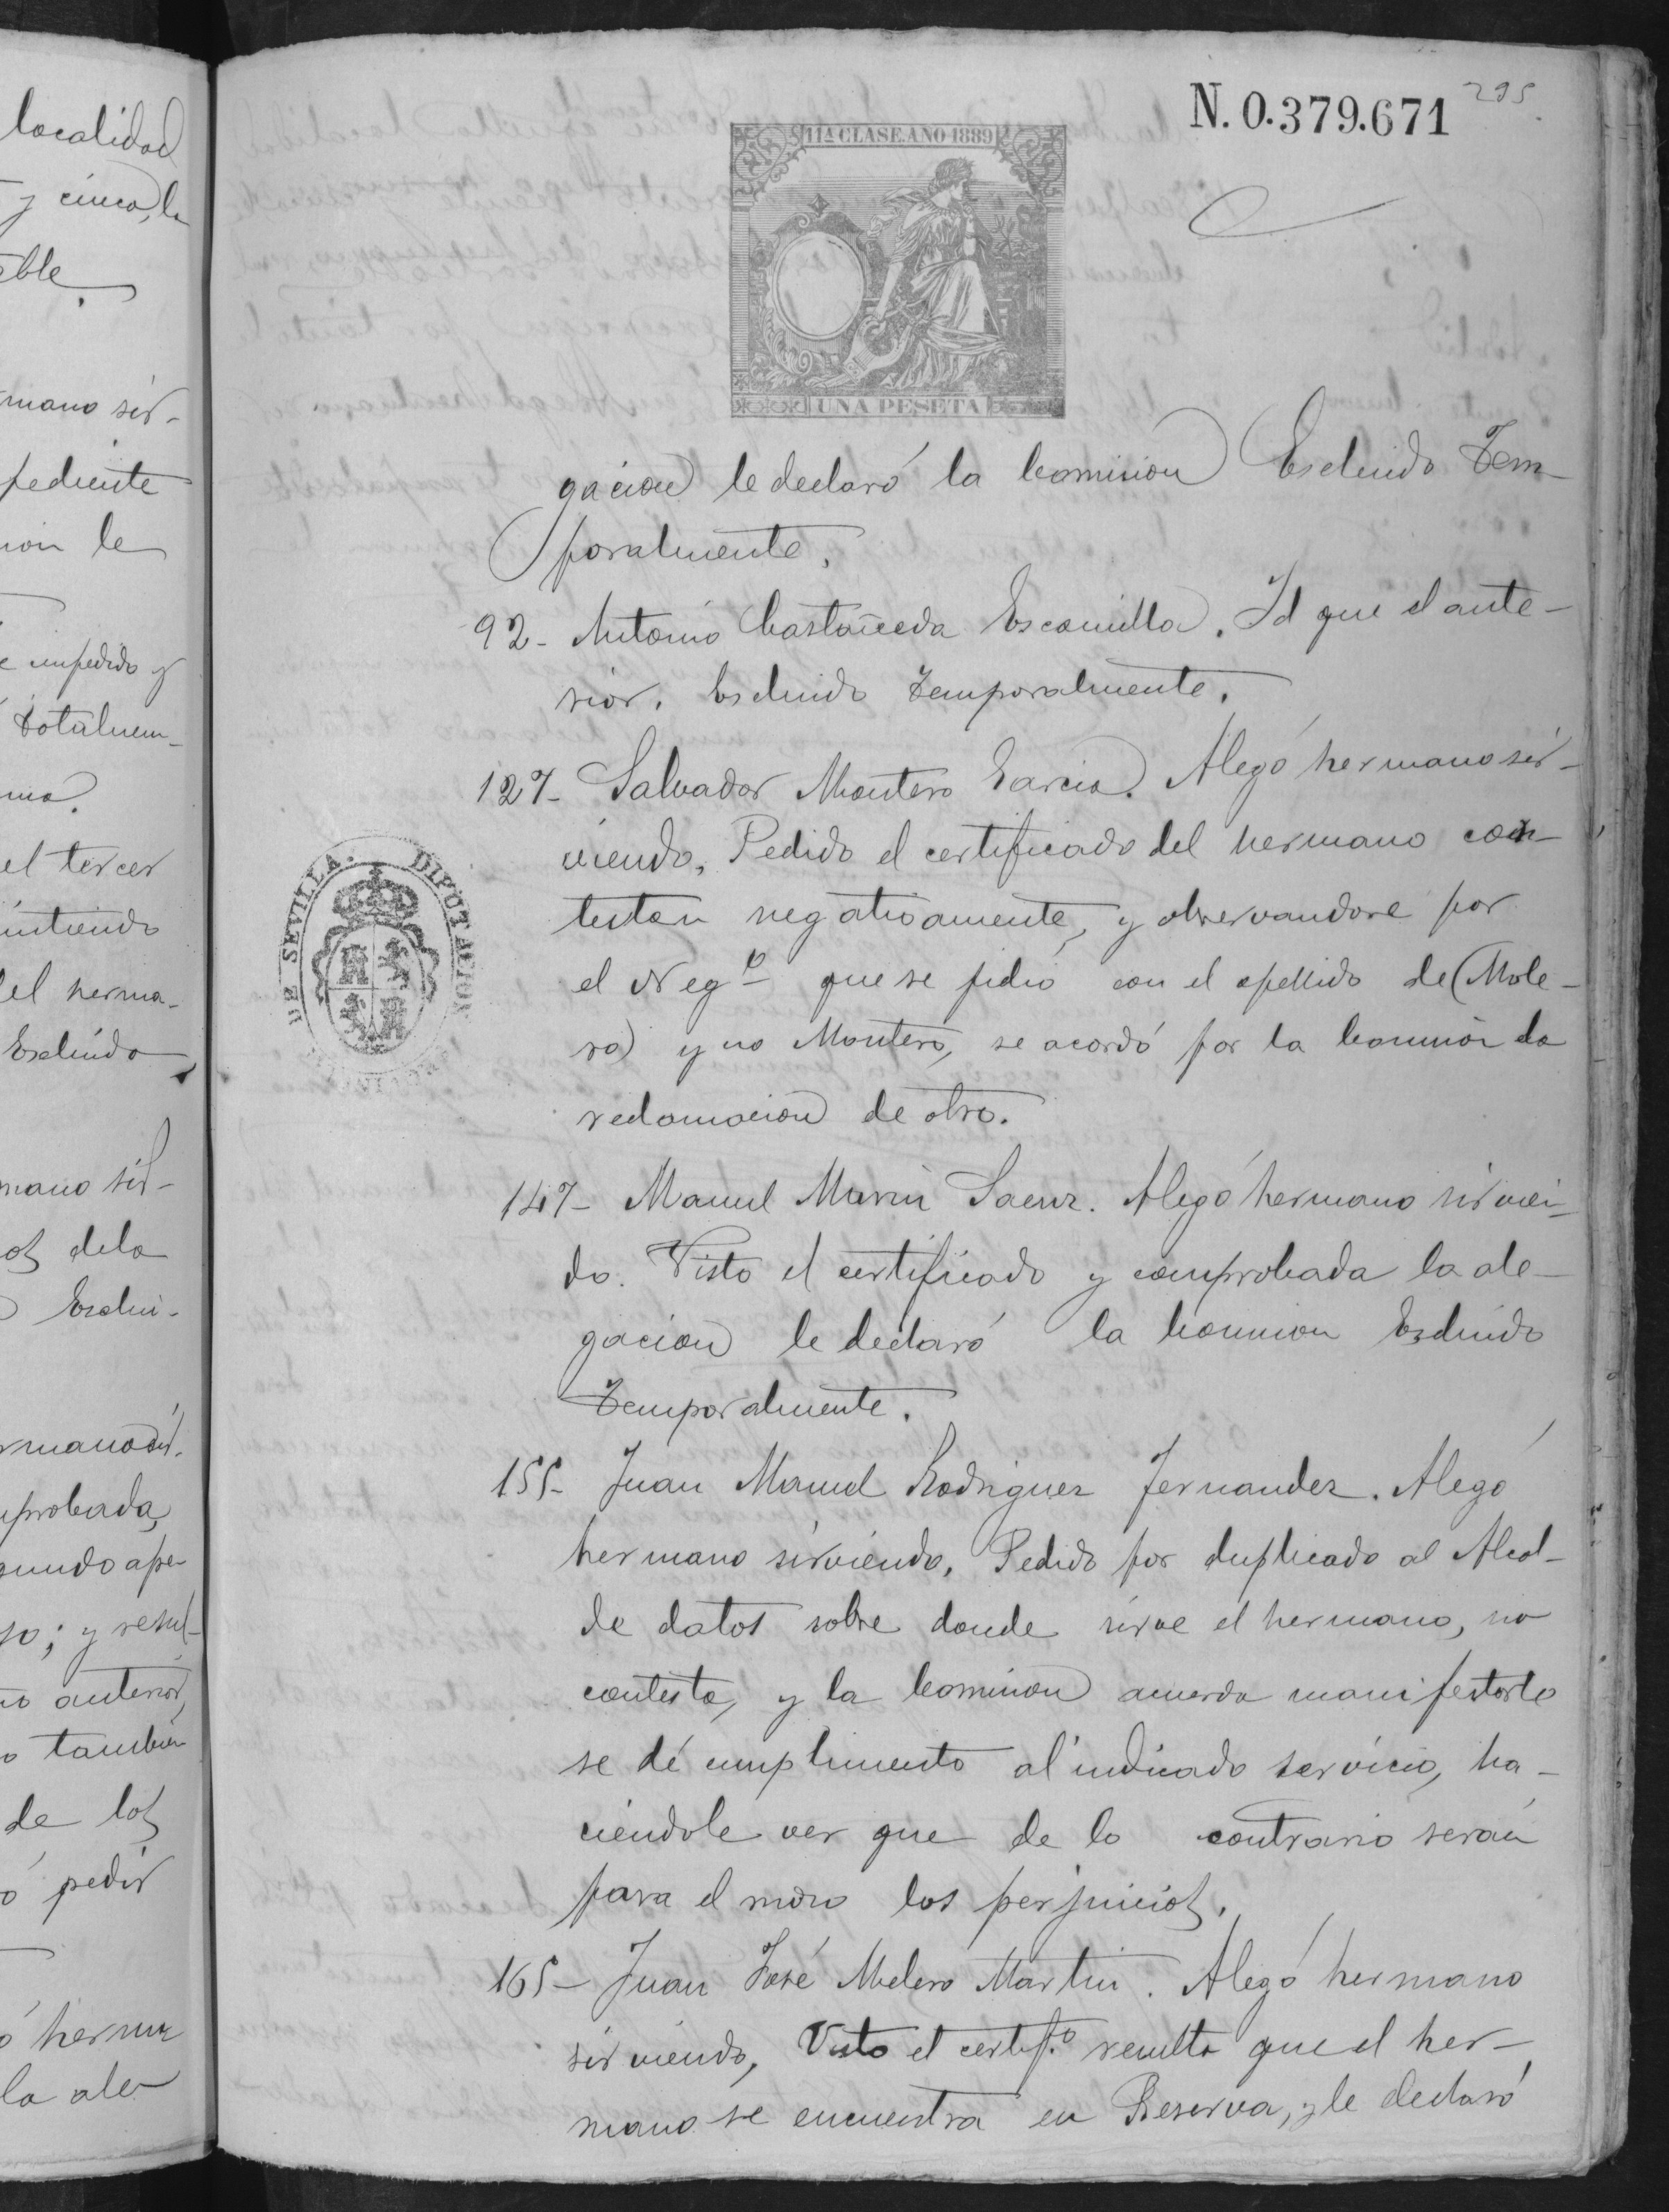 localidad
y cinco, la
able.
rmano sir-
pediente
ion le
e impedido y
totalmen-
ma.
el tercer
intiendo
el herma-
Escluido
mano sir-
de la
Esclui-
rmano sir-
mprobada,
gundo ape-
so; y resul-
no anterior,
o tambien
de los
ó pedir
ó herma
la ale
N. 0.379.671
295
11ª CLASE. AÑO 1889
UNA PESETA
gacion le declaró la Comision Escluido Tem-
poralmente.
92- Antonio Castañeda Escamilla. Id que el ante-
rior. Escluido Temporalmente.
127- Salvador Montero Garcia. Alegó hermano sir-
viendo. Pedido el certificado del hermano con-
testan negativamente, y observandose por
el Neg.º que se pidió con el apellido de (Mole-
ro) y no Montero, se acordó por la Comision la
reclamacion de otro.
147- Manuel Marin Saenz. Alegó hermano sirvien-
do. Visto el certificado y comprobada la ale-
gacion le declaró la Comision Escluido
Temporalmente.
155- Juan Manuel Rodriguez Fernandez. Alegó
hermano sirviendo. Pedido por duplicado al Alcal-
de datos sobre donde sirve el hermano, no
contesta, y la Comision acuerda manifestarle
se dé cumplimento al indicado servicio, ha-
ciendole ver que de lo contrario serán
para el mozo los perjuicios.
165- Juan José Melero Martin. Alegó hermano
sirviendo, Visto el certif.º resulta que el her-
mano se encuentra en Reserva, y le declaró
DIPUTACION
DE SEVILLA.